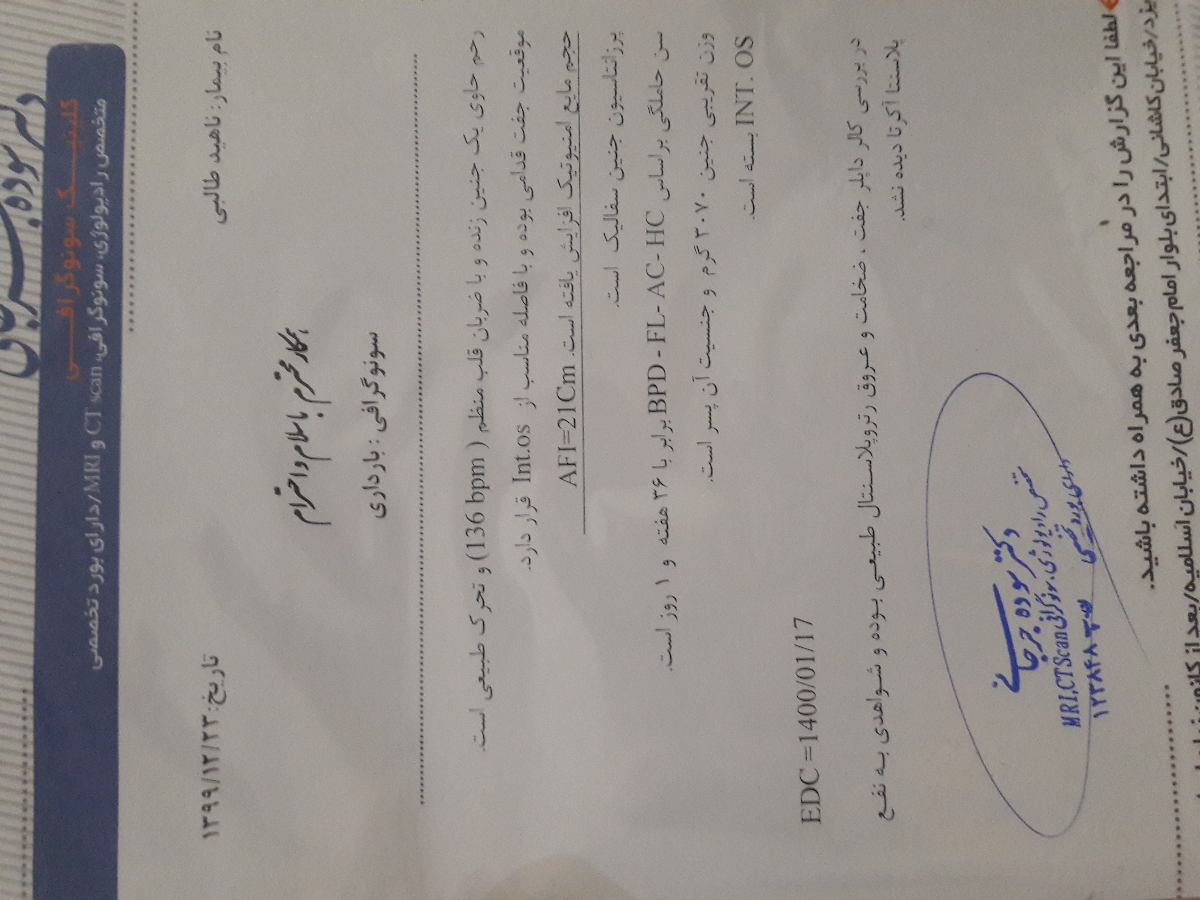 دکتر سوده جرجانی
کلینیک سونوگرافی
متخصص رادیولوژی، سونوگرافی، CT scan و MRI / دارای بورد تخصصی
نام بیمار: ناهید طالبی
تاریخ: ۱۳۹۹/۱۲/۲۳
همکار محترم با سلام و احترام
سونوگرافی : بارداری
رحم حاوی یک جنین زنده و با ضربان قلب منظم ( 136 bpm ) و تحرک طبیعی است.
موقعیت جفت قدامی بوده و با فاصله مناسب از Int.os قرار دارد.
حجم مایع امنیوتیک افزایش یافته است. AFI=21Cm
پرزانتاسیون جنین سفالیک است.
سن حاملگی براساس BPD - FL- AC- HC برابر با ۳۶ هفته و ۱ روز است.
وزن تقریبی جنین ۳۰۷۰ گرم و جنسیت آن پسر است.
INT. OS بسته است.
EDC =1400/01/17
در بررسی کالر داپلر جفت ، ضخامت و عروق رتروپلاسنتال طبیعی بوده و شواهدی به نفع
پلاسنتا آکرتا دیده نشد.
دکتر سوده جرجانی
متخصص رادیولوژی، سونوگرافی
MRI,CTScan
دارای بورد تخصصی
لطفا این گزارش را در مراجعه بعدی به همراه داشته باشید.
یزد/خیابان کاشانی/ابتدای بلوار امام جعفر صادق(ع)/خیابان اسلامیه/بعد از کانون